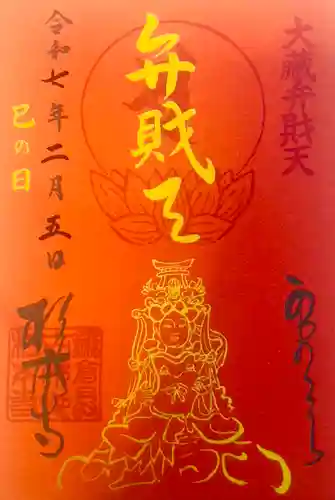 大蔵弁財天
弁財天
令和七年二月五日
巳の日
杉本寺